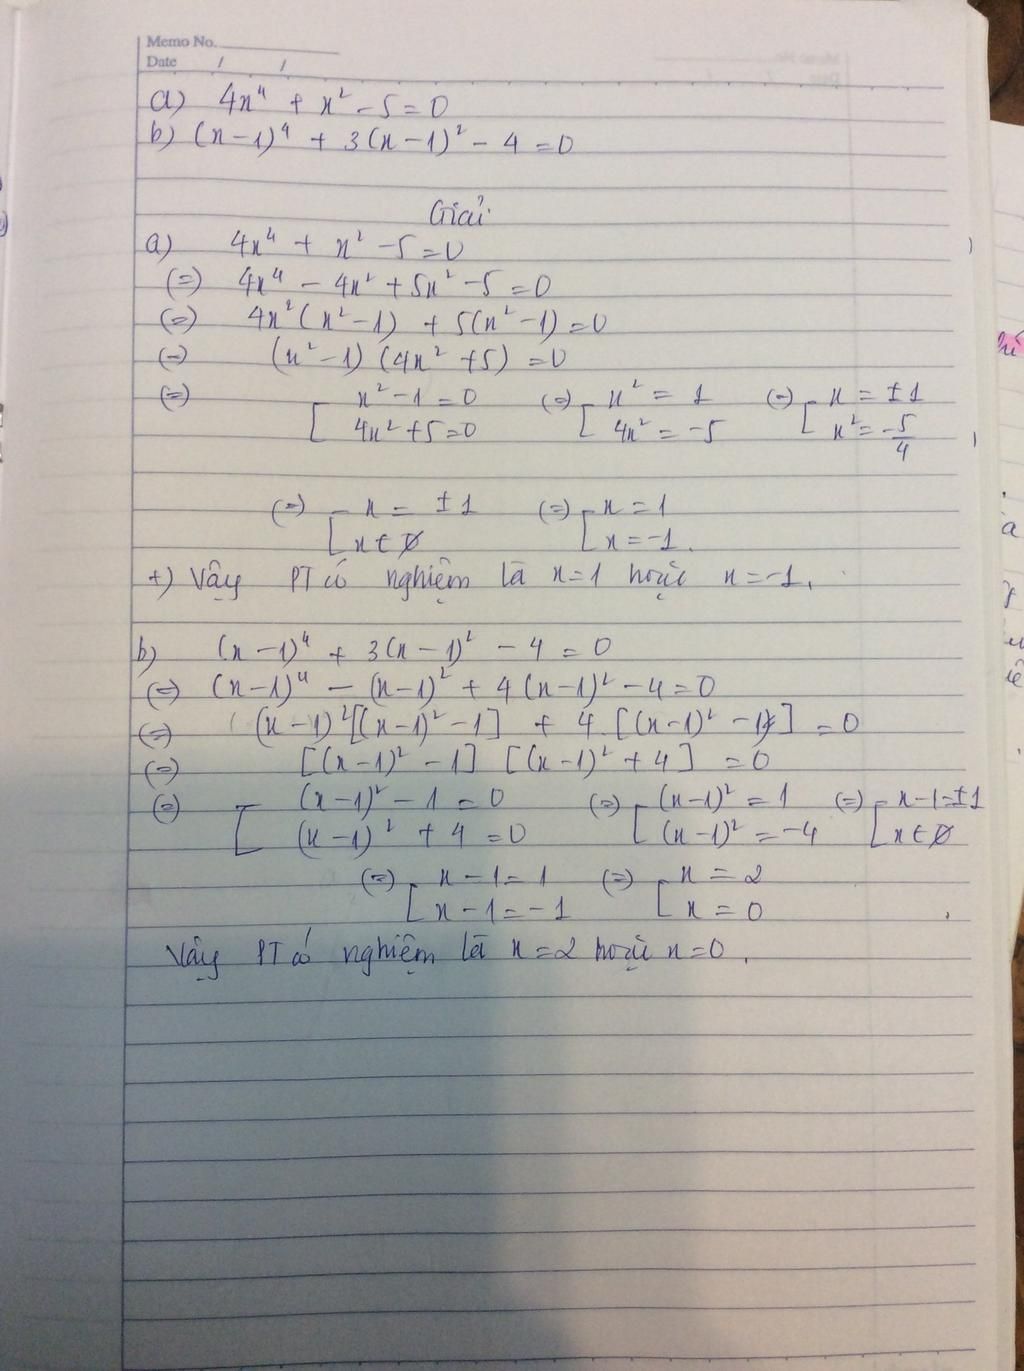 Memo No.
Date / /
a) 4x⁴ + x² - 5 = 0
b) (x-1)⁴ + 3(x-1)² - 4 = 0
Giải
a) 4x⁴ + x² - 5 = 0
(=) 4x⁴ - 4x² + 5x² - 5 = 0
(=) 4x²(x²-1) + 5(x²-1) = 0
(=) (x²-1)(4x²+5) = 0
(=) [ x²-1 = 0 (=) [ x² = 1 (=) [ x = ±1
4x²+5 = 0 4x² = -5 x² = -5/4
(=) [ x = ±1 (=) [ x = 1
x ∈ ∅ x = -1.
+) Vậy PT có nghiệm là x=1 hoặc x=-1.
b) (x-1)⁴ + 3(x-1)² - 4 = 0
(=) (x-1)⁴ - (x-1)² + 4(x-1)² - 4 = 0
(=) (x-1)²[(x-1)² - 1] + 4.[(x-1)² - 1] = 0
(=) [(x-1)² - 1] [(x-1)² + 4] = 0
(=) [ (x-1)² - 1 = 0 (=) [ (x-1)² = 1 (=) [ x-1 = ±1
(x-1)² + 4 = 0 (x-1)² = -4 x ∈ ∅
(=) [ x-1 = 1 (=) [ x = 2
x-1 = -1 x = 0
Vậy PT có nghiệm là x=2 hoặc x=0.